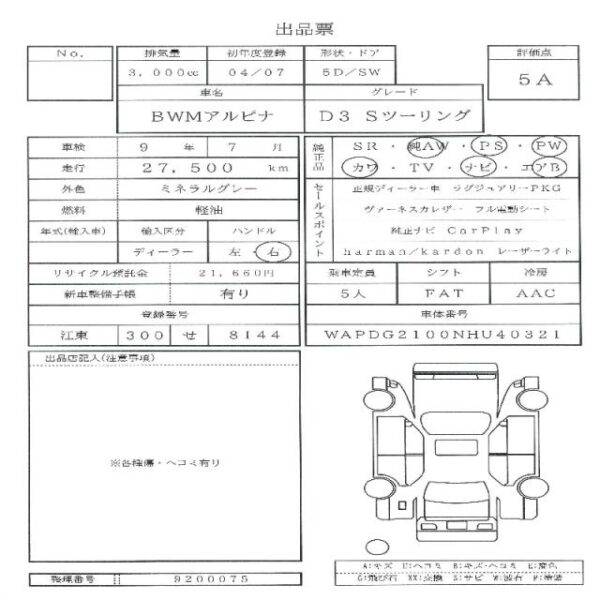 出品票
No.
排気量 初年度登録 形状・ドア 評価点
3,000cc 04/07 5D/SW 5A
車名 グレード
BWMアルピナ D3 Sツーリング
車検 9 年 7 月
走行 27,500 km
外色 ミネラルグレー
燃料 軽油
年式(輸入車) 輸入区分 ハンドル
ディーラー 左・右
リサイクル預託金 21,660円
新車整備手帳 有り
登録番号
江東 300 せ 8144
純正品
SR・純AW・PS・PW
カワ・TV・ナビ・エアB
セールスポイント
正規ディーラー車 ラグジュアリーPKG
ヴァーネスカレザー フル電動シート
純正ナビ CarPlay
harman/kardon レーザーライト
乗車定員 シフト 冷房
5人 FAT AAC
車体番号
WAPDG2100NHU40321
出品店記入(注意事項)
※各種傷・ヘコミ有り
整理番号 9200075
A:キズ U:ヘコミ B:キズ・ヘコミ E:変色
G:飛び石 XX:交換 S:サビ W:波有 P:塗装